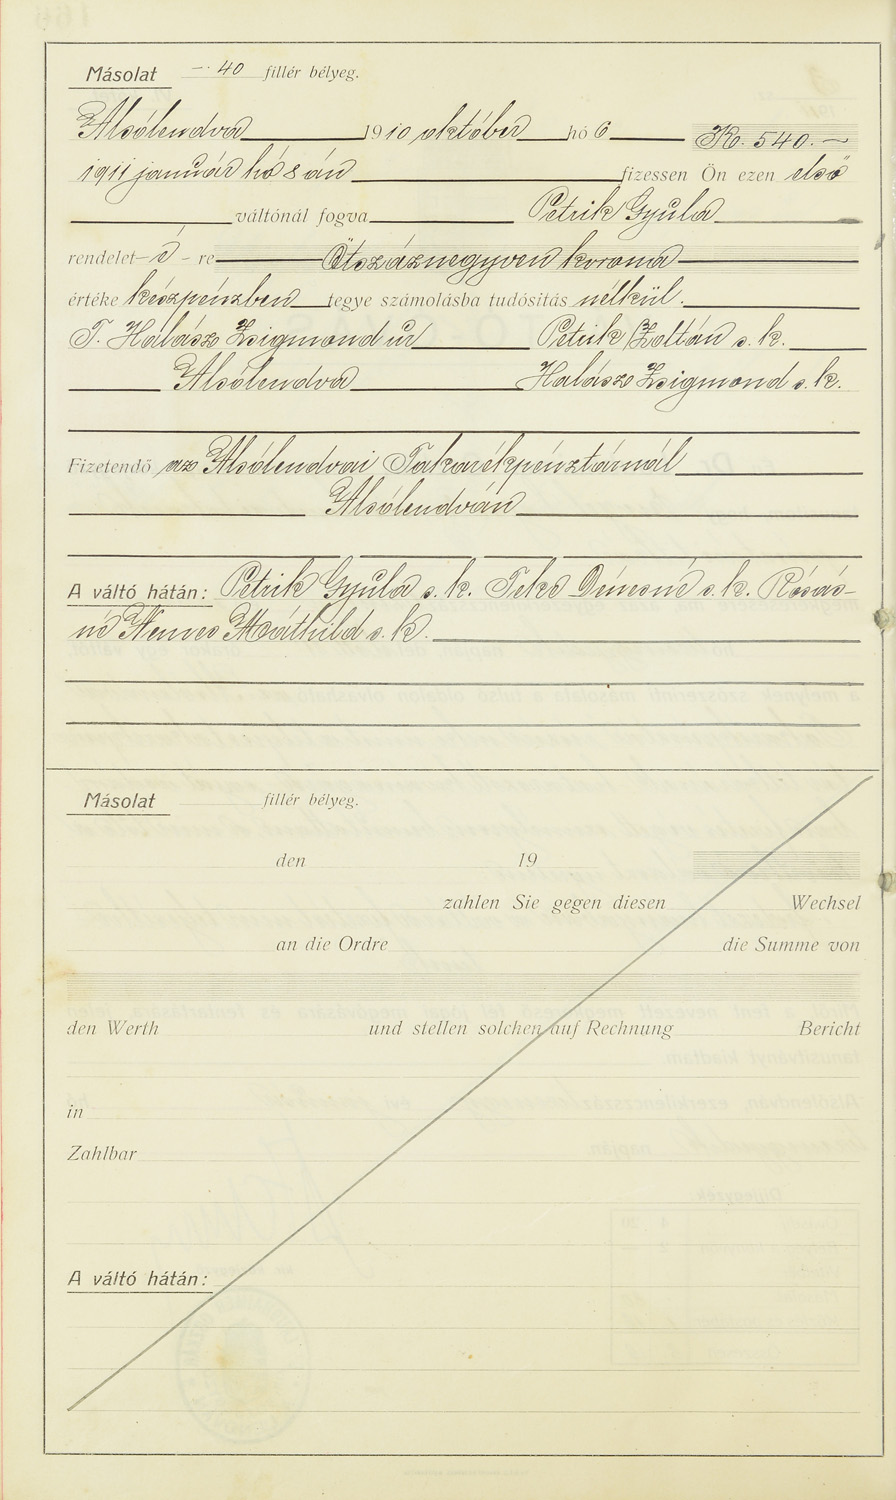 Másolat -·40 fillér bélyeg.
Alsólendva 1910 október hó 6 K. 540.—
1911 január hó 8 án fizessen Ön ezen első
váltónál fogva Petrik Gyula
rendelet-é-re Ötszáznegyven korona
értéke készpénzben tegye számolásba tudósítás nélkül.
T. Halász Zsigmond úr Petrik Zoltán s. k.
Alsólendva Halász Zsigmond s. k.
Fizetendő az Alsólendvai Takarékpénztárnál
Alsólendván
A váltó hátán: Petrik Gyula s. k. Teke Dénesné s. k.
né Nemes Mathild s. k.
Másolat fillér bélyeg.
den 19
zahlen Sie gegen diesen Wechsel
an die Ordre die Summe von
den Werth und stellen solchen auf Rechnung Bericht
in
Zahlbar
A váltó hátán: